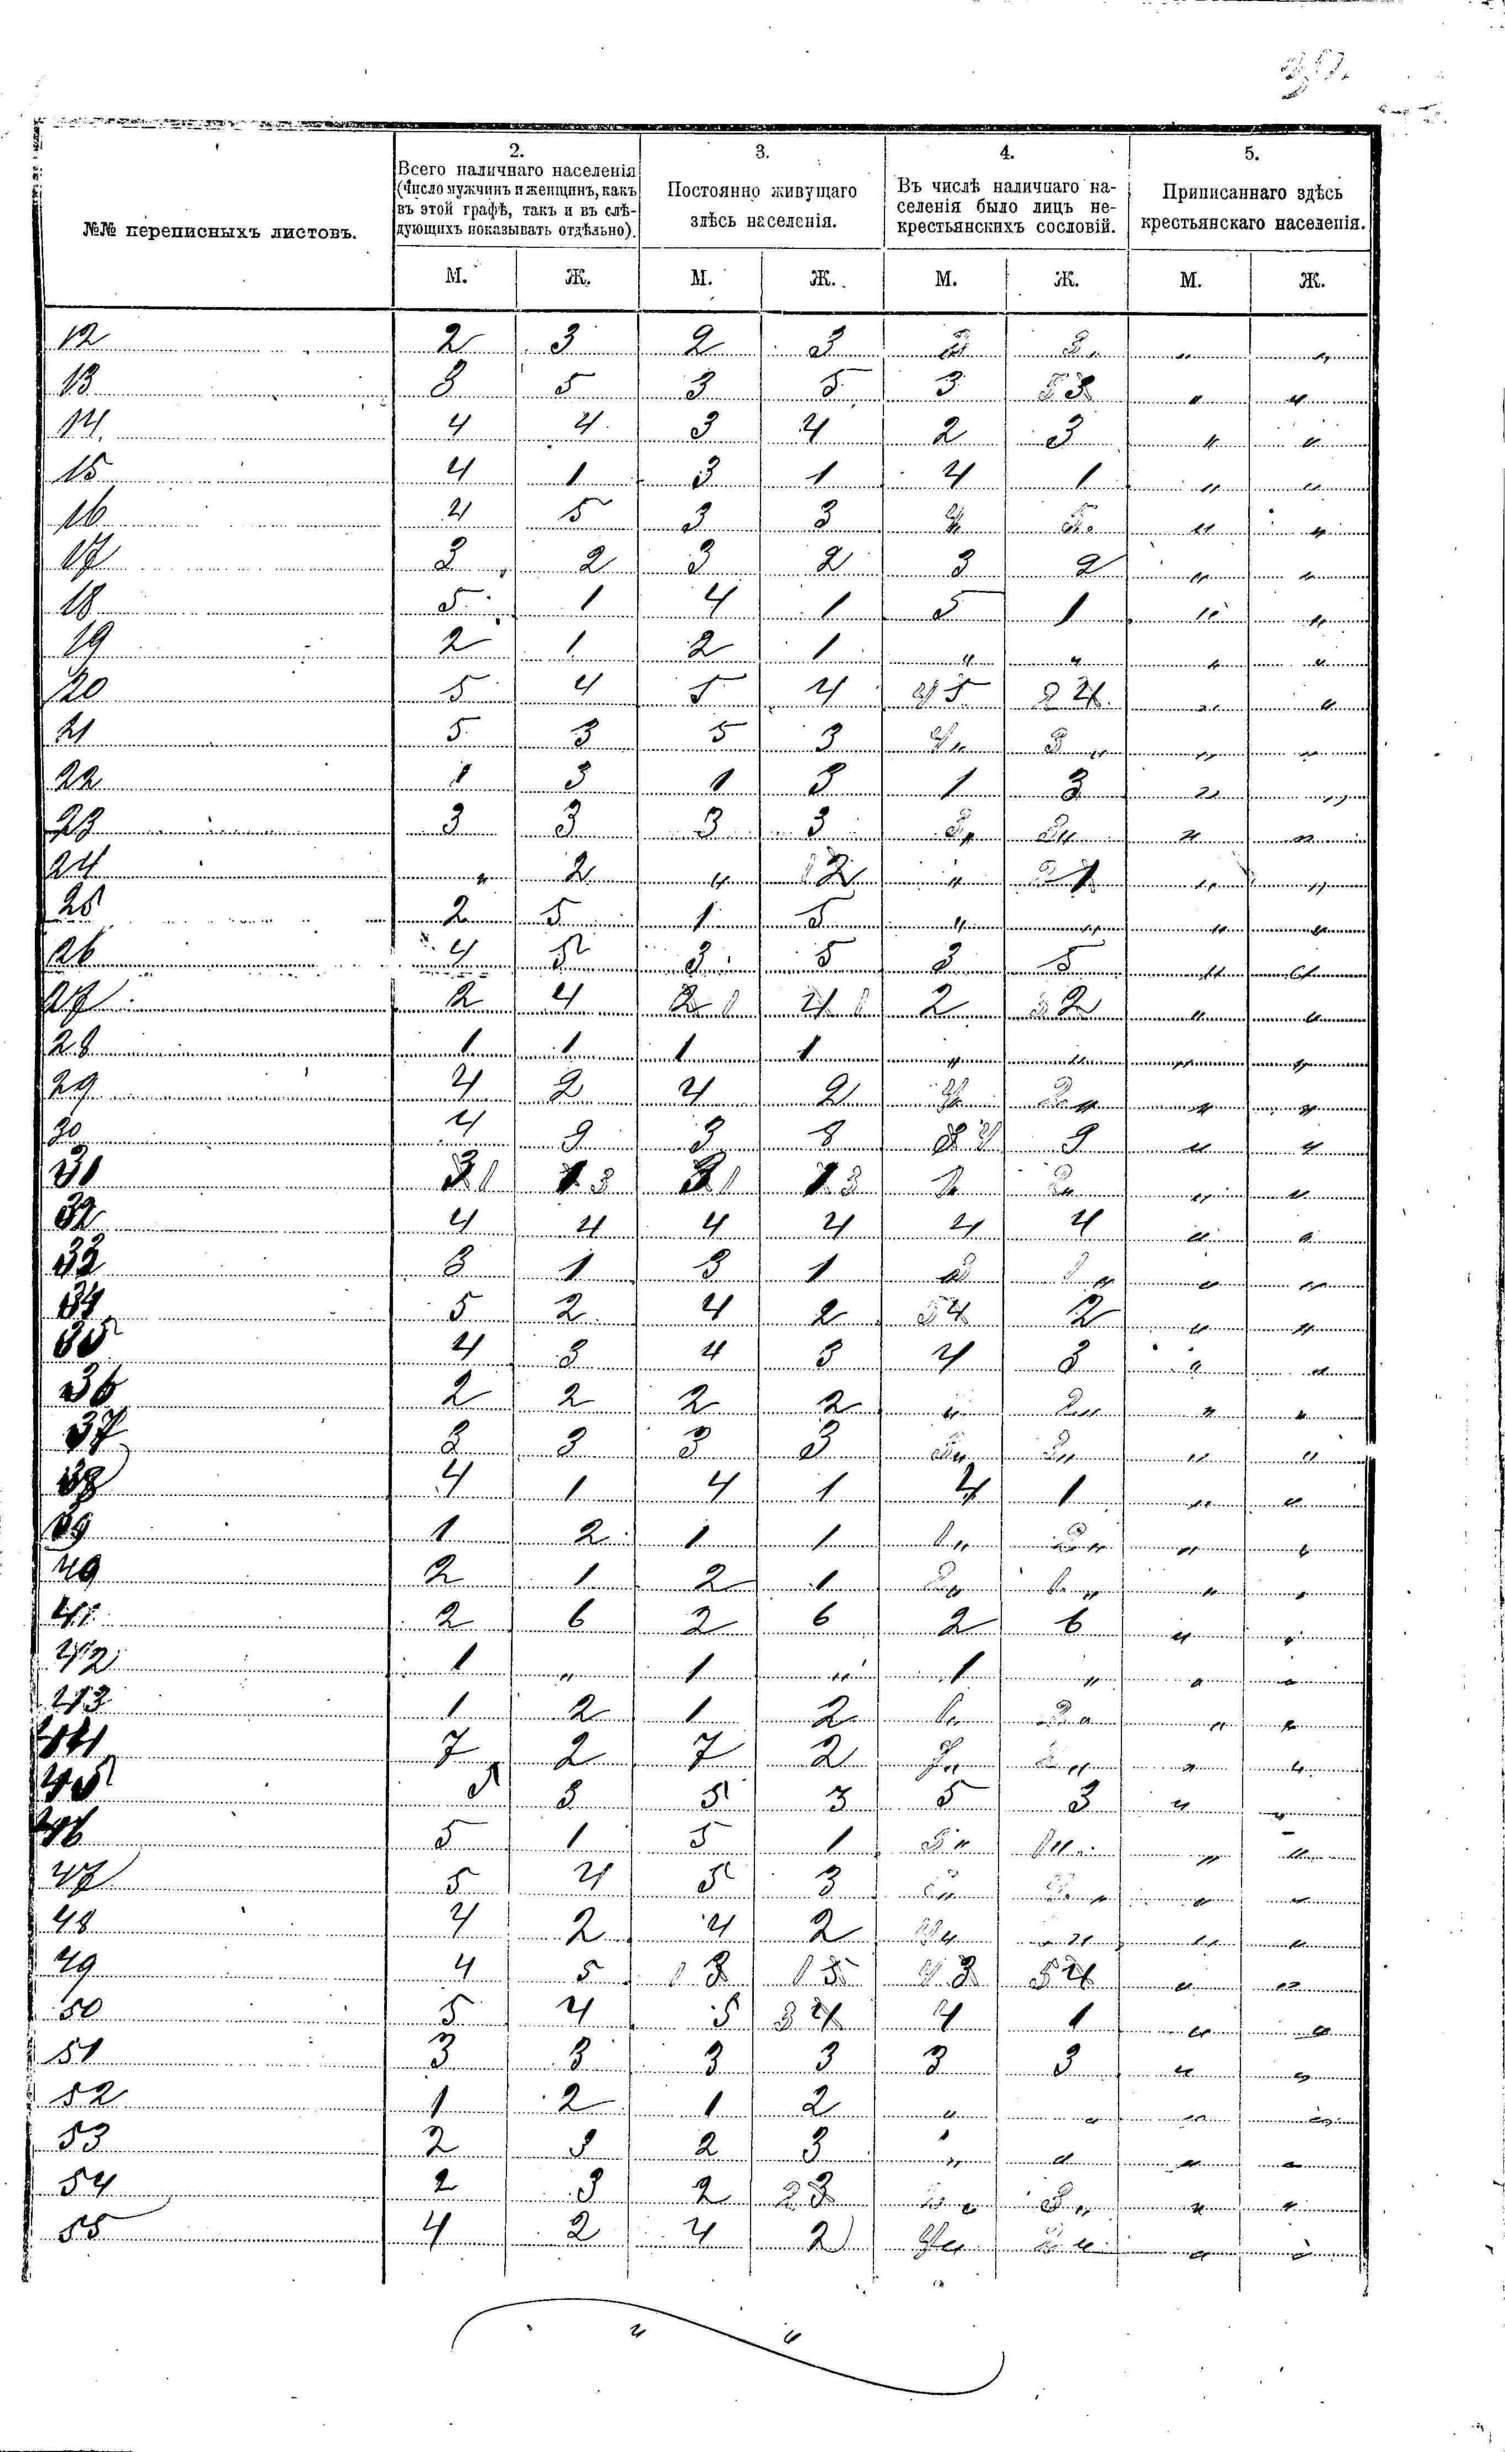 2. 3. 4. 5.
№№ переписныхъ листовъ.
Всего наличнаго населенія
(число мужчинъ и женщинъ, какъ
въ этой графѣ, такъ и въ слѣ-
дующихъ показывать отдѣльно).
Постоянно живущаго
здѣсь населенія.
Въ числѣ наличнаго на-
селенія было лицъ не-
крестьянскихъ сословій.
Приписаннаго здѣсь
крестьянскаго населенія.
М. Ж. М. Ж. М. Ж. М. Ж.
12 2 3 2 3 " "
13 3 5 3 5 3 3 " "
14 4 4 3 4 2 3 " "
15 4 1 3 1 4 1 " "
16 4 5 3 3 " "
17 3 2 3 2 3 2 " "
18 5 1 4 1 5 1 " "
19 2 1 2 1 " " " "
20 5 4 5 4 5 4 " "
21 5 3 5 3 " " " "
22 1 3 1 3 1 3 " "
23 3 3 3 3 " " " "
24 " 2 " 2 " " "
25 2 5 1 5 " " " "
26 4 5 3 5 3 5 " "
27 2 4 2 2 " "
28 1 1 1 1 " " " "
29 4 2 4 2 " " " "
30 4 3 3 3 3 " "
31 1 3 1 3 " " " "
32 4 4 4 4 4 4 " "
33 3 1 3 1 " " "
34 5 2 4 2 4 2 " "
35 4 3 4 3 4 3 " "
36 2 2 2 2 " " " "
37 3 3 3 3 " " " "
38 4 1 4 1 4 1 " "
39 1 2 1 1 " " " "
40 2 1 2 1 " " " "
41 2 6 2 6 2 6 " "
42 1 " 1 " 1 " " "
43 1 2 1 2 " " " "
44 7 2 7 2 " " " "
45 5 3 5 3 5 3 " "
46 5 1 5 1 " " " "
47 5 4 5 3 " " " "
48 4 2 4 2 " " " "
49 4 5 3 5 3 4 " "
50 5 4 5 4 4 1 " "
51 3 3 3 3 3 3 " "
52 1 2 1 2 " " " "
53 2 3 2 3 " " " "
54 2 3 2 3 " " " "
55 4 2 4 2 " " " "